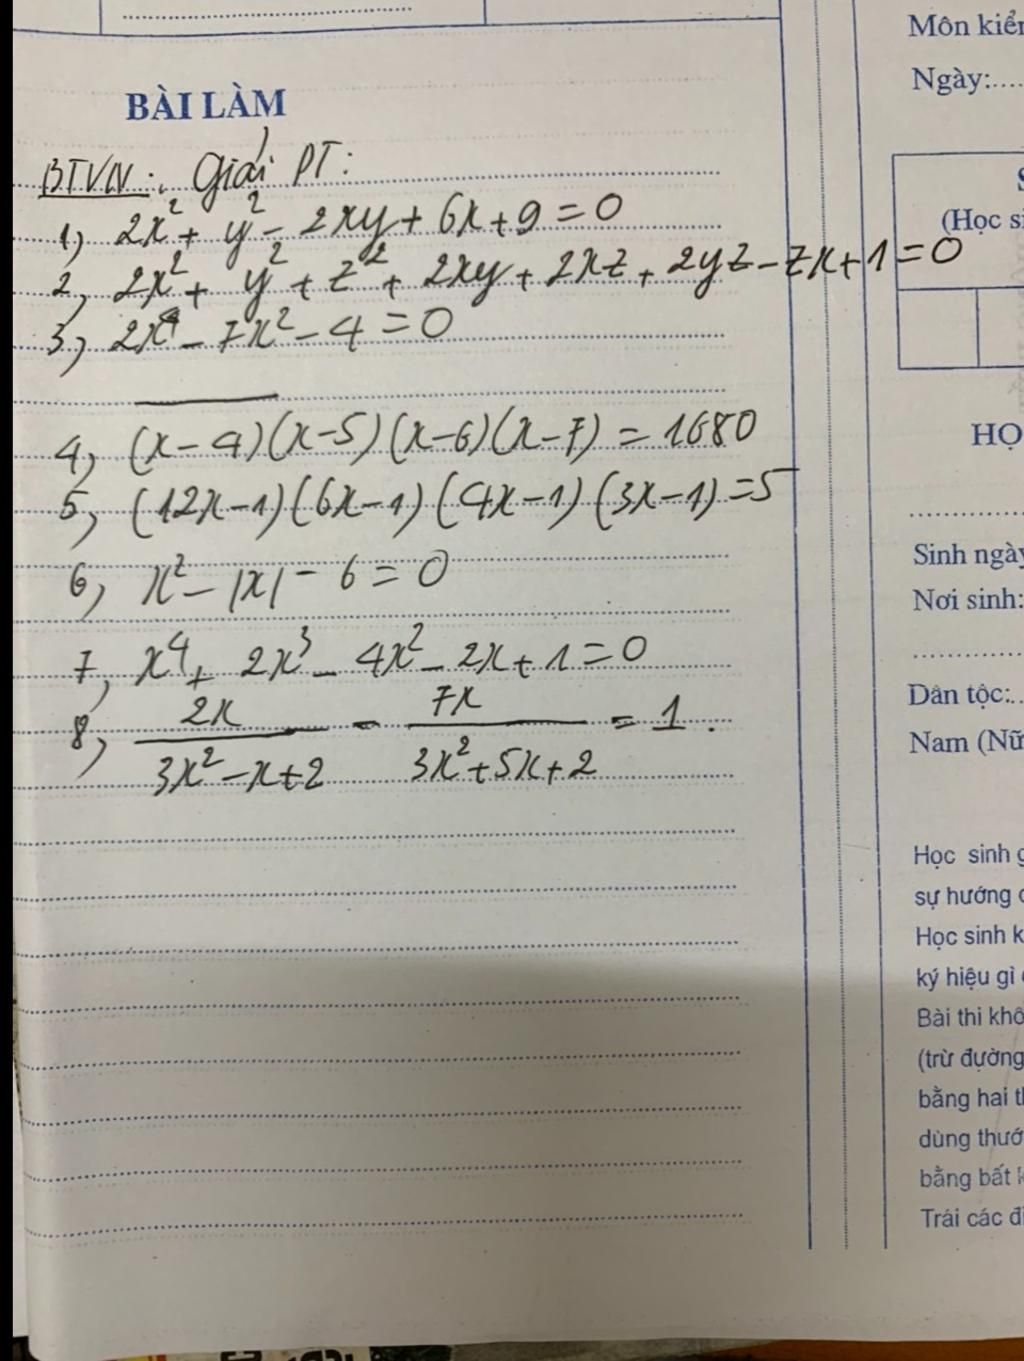 Môn kiểm
Ngày:....
BÀI LÀM
BTVN: Giải PT:
1) 2x² + y² - 2xy + 6x + 9 = 0
2, 2x² + y² + z² + 2xy + 2xz + 2yz - zx + 1 = 0
3, 2x⁴ - 7x² - 4 = 0
4, (x-4)(x-5)(x-6)(x-7) = 1680
5, (12x-1)(6x-1)(4x-1)(3x-1) = 5
6, x² - |x| - 6 = 0
7, x⁴ + 2x³ - 4x² - 2x + 1 = 0
8, 2x/(3x² - x + 2) - 7x/(3x² + 5x + 2) = 1.
S
(Học si
HỌ
Sinh ngày
Nơi sinh:
Dân tộc:..
Nam (Nữ
Học sinh g
sự hướng d
Học sinh k
ký hiệu gì
Bài thi khô
(trừ đường
bằng hai th
dùng thướ
bằng bất k
Trái các đi